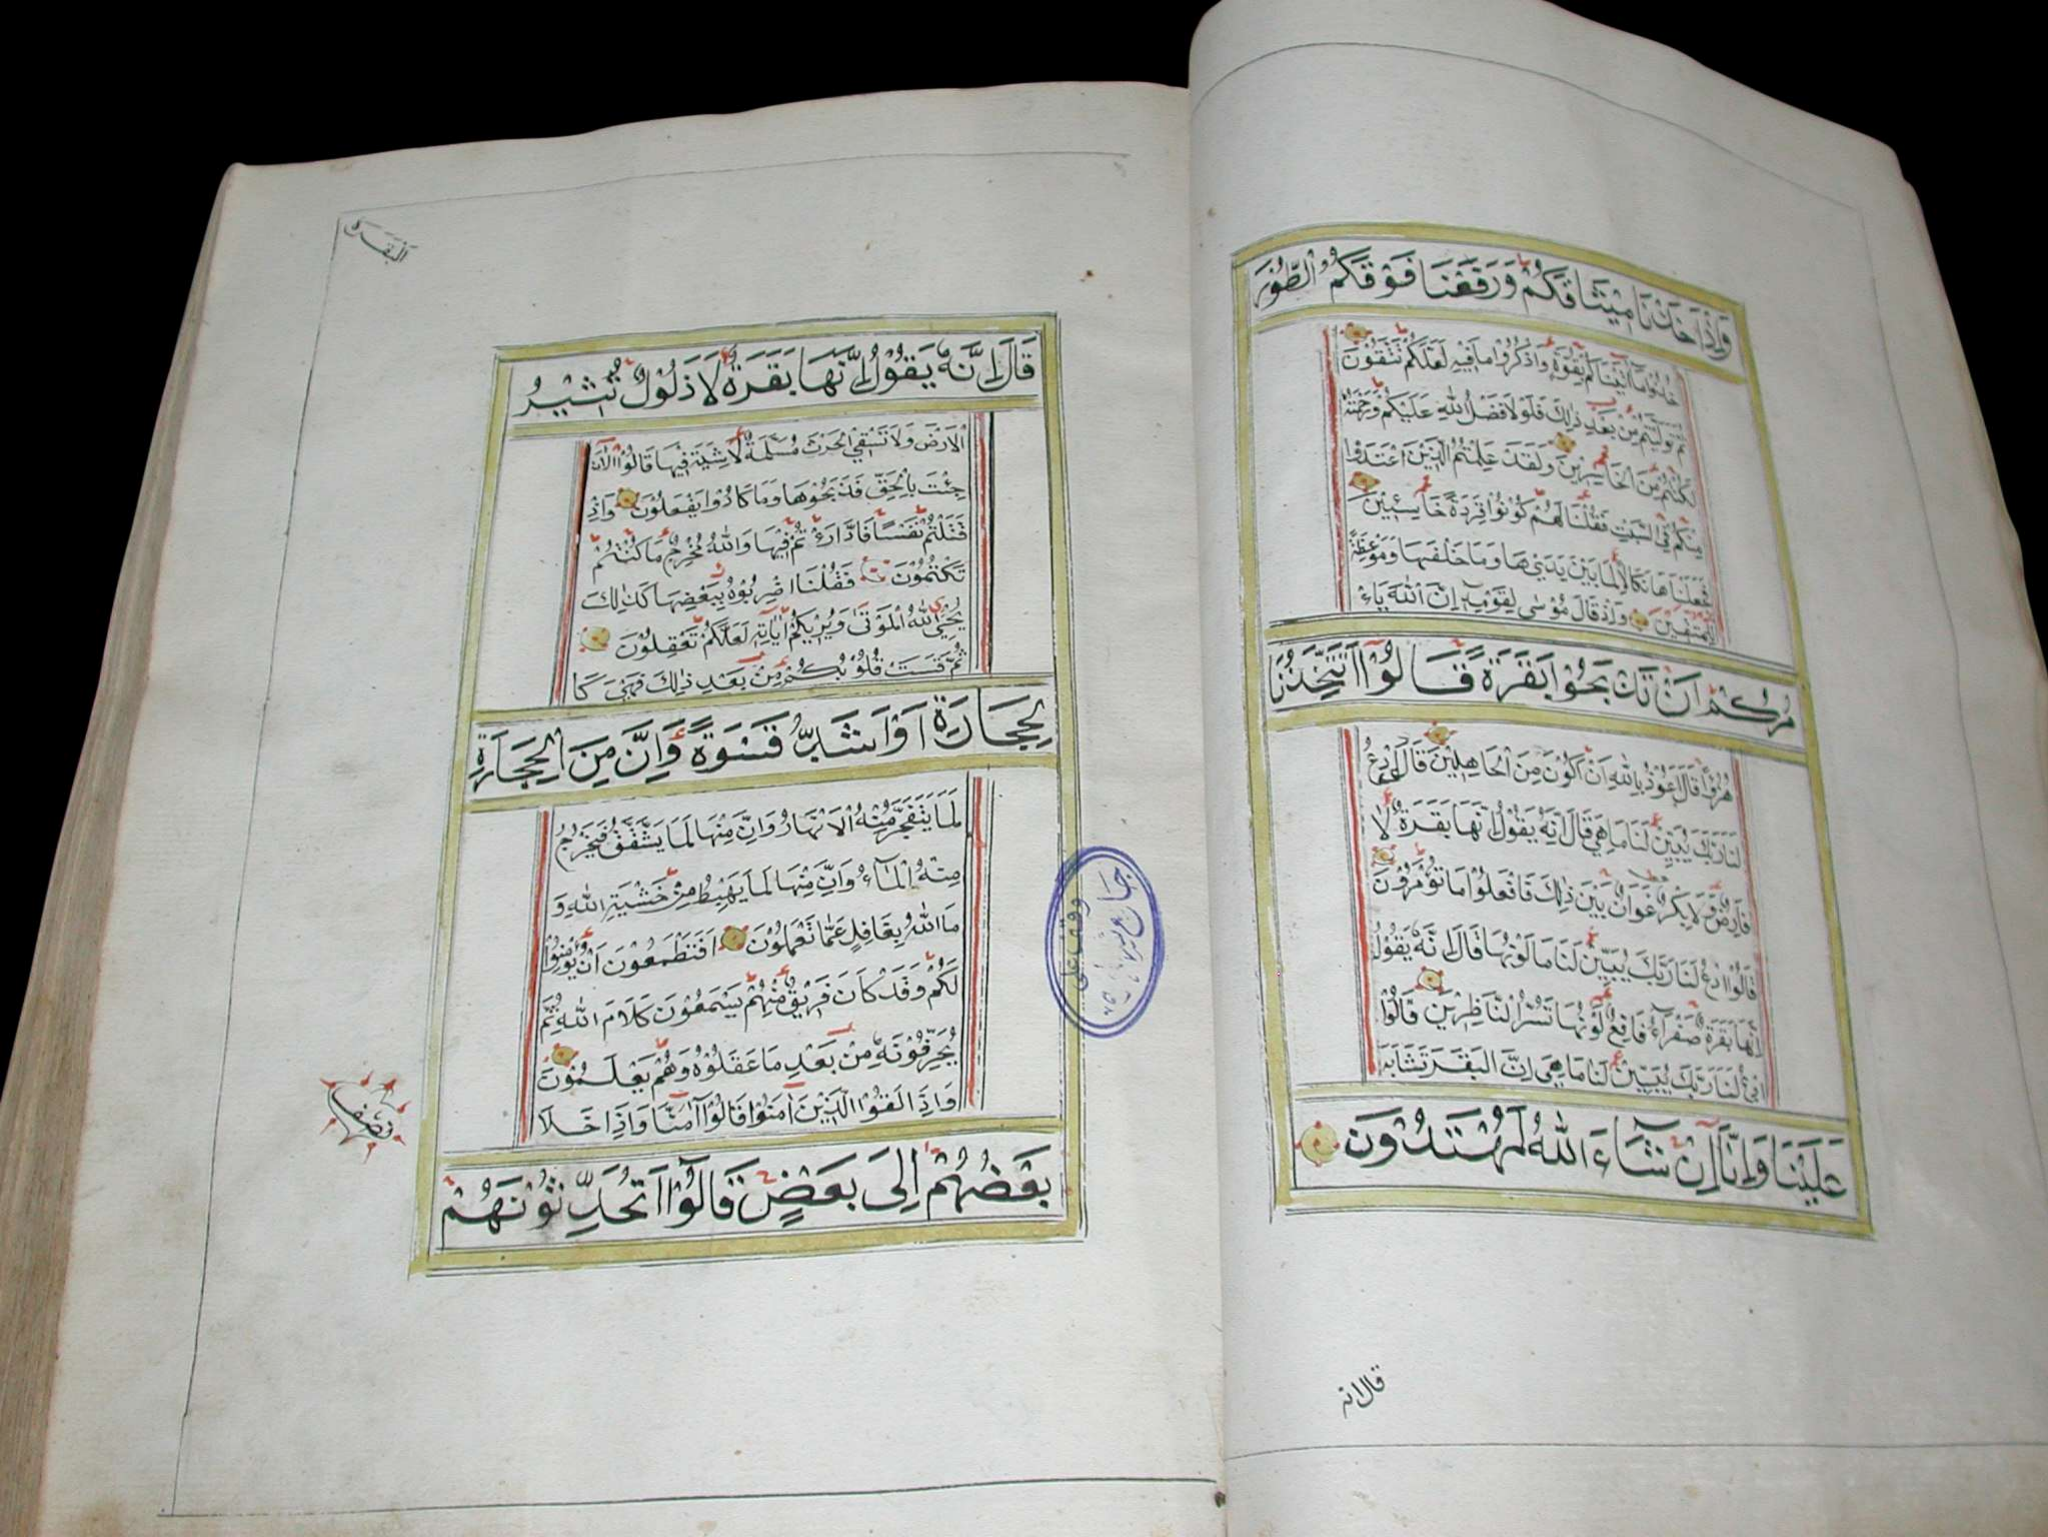 وَاِذْ اَخَذْنَا مِيْثَاقَكُمْ وَرَفَعْنَا فَوْقَكُمُ الطُّوْرَ
خُذُوْا مَا آتَيْنَاكُمْ بِقُوَّةٍ وَاذْكُرُوْا مَا فِيْهِ لَعَلَّكُمْ تَتَّقُوْنَ
ثُمَّ تَوَلَّيْتُمْ مِنْ بَعْدِ ذٰلِكَ فَلَوْلَا فَضْلُ اللّٰهِ عَلَيْكُمْ وَرَحْمَتُهُ
لَكُنْتُمْ مِنَ الْخَاسِرِيْنَ وَلَقَدْ عَلِمْتُمُ الَّذِيْنَ اعْتَدَوْا
مِنْكُمْ فِي السَّبْتِ فَقُلْنَا لَهُمْ كُوْنُوْا قِرَدَةً خَاسِئِيْنَ
فَجَعَلْنَاهَا نَكَالًا لِمَا بَيْنَ يَدَيْهَا وَمَا خَلْفَهَا وَمَوْعِظَةً
لِلْمُتَّقِيْنَ وَاِذْ قَالَ مُوْسٰى لِقَوْمِهِ اِنَّ اللّٰهَ يَاْ
مُرُكُمْ اَنْ تَذْبَحُوْا بَقَرَةً قَالُوْا اَتَتَّخِذُنَا
هُزُوًا قَالَ اَعُوْذُ بِاللّٰهِ اَنْ اَكُوْنَ مِنَ الْجَاهِلِيْنَ قَالُوا ادْعُ
لَنَا رَبَّكَ يُبَيِّنْ لَنَا مَا هِيَ قَالَ اِنَّهُ يَقُوْلُ اِنَّهَا بَقَرَةٌ لَا
فَارِضٌ وَلَا بِكْرٌ عَوَانٌ بَيْنَ ذٰلِكَ فَافْعَلُوْا مَا تُؤْمَرُوْنَ
قَالُوا ادْعُ لَنَا رَبَّكَ يُبَيِّنْ لَنَا مَا لَوْنُهَا قَالَ اِنَّهُ يَقُوْلُ
اِنَّهَا بَقَرَةٌ صَفْرَآءُ فَاقِعٌ لَوْنُهَا تَسُرُّ النَّاظِرِيْنَ قَالُوا
ادْعُ لَنَا رَبَّكَ يُبَيِّنْ لَنَا مَا هِيَ اِنَّ الْبَقَرَ تَشَابَهَ
عَلَيْنَا وَاِنَّآ اِنْ شَآءَ اللّٰهُ لَمُهْتَدُوْنَ
قال انه
البَقَرَة
قَالَ اِنَّهُ يَقُوْلُ اِنَّهَا بَقَرَةٌ لَا ذَلُوْلٌ تُثِيْرُ
الْاَرْضَ وَلَا تَسْقِي الْحَرْثَ مُسَلَّمَةٌ لَا شِيَةَ فِيْهَا قَالُوا الْاٰنَ
جِئْتَ بِالْحَقِّ فَذَبَحُوْهَا وَمَا كَادُوْا يَفْعَلُوْنَ وَاِذْ
قَتَلْتُمْ نَفْسًا فَادَّارَءْتُمْ فِيْهَا وَاللّٰهُ مُخْرِجٌ مَا كُنْتُمْ
تَكْتُمُوْنَ فَقُلْنَا اضْرِبُوْهُ بِبَعْضِهَا كَذٰلِكَ
يُحْيِ اللّٰهُ الْمَوْتٰى وَيُرِيْكُمْ اٰيَاتِهِ لَعَلَّكُمْ تَعْقِلُوْنَ
ثُمَّ قَسَتْ قُلُوْبُكُمْ مِنْ بَعْدِ ذٰلِكَ فَهِيَ كَا
لْحِجَارَةِ اَوْ اَشَدُّ قَسْوَةً وَاِنَّ مِنَ الْحِجَارَةِ
لَمَا يَتَفَجَّرُ مِنْهُ الْاَنْهَارُ وَاِنَّ مِنْهَا لَمَا يَشَّقَّقُ فَيَخْرُجُ
مِنْهُ الْمَآءُ وَاِنَّ مِنْهَا لَمَا يَهْبِطُ مِنْ خَشْيَةِ اللّٰهِ وَ
مَا اللّٰهُ بِغَافِلٍ عَمَّا تَعْمَلُوْنَ اَفَتَطْمَعُوْنَ اَنْ يُؤْمِنُوْا
لَكُمْ وَقَدْ كَانَ فَرِيْقٌ مِنْهُمْ يَسْمَعُوْنَ كَلَامَ اللّٰهِ ثُمَّ
يُحَرِّفُوْنَهُ مِنْ بَعْدِ مَا عَقَلُوْهُ وَهُمْ يَعْلَمُوْنَ
وَاِذَا لَقُوا الَّذِيْنَ اٰمَنُوْا قَالُوْا اٰمَنَّا وَاِذَا خَلَا
بَعْضُهُمْ اِلٰى بَعْضٍ قَالُوْا اَتُحَدِّثُوْنَهُمْ
نصف
وقف على